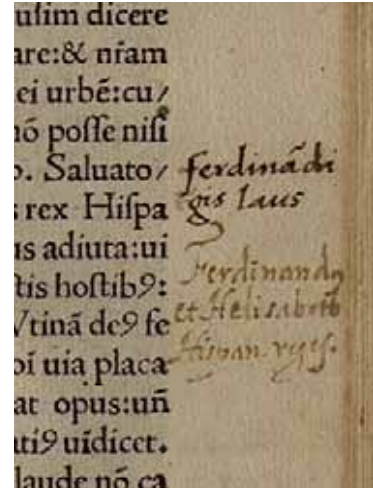 uſim dicere
are:& nr̄am
ei urbē:cu/
nō poſſe niſi
o. Saluato/
s rex Hiſpa
us adiuta:ui
ſtis hoſtibꝰ:
Vtinā deꝰ fe
oī uia placa
at opus:un̄
atiꝰ uīdicet.
laude nō ca
ferdinādi
gis laus
Ferdinandꝰ
et Helisabeth
Hispan. reges.